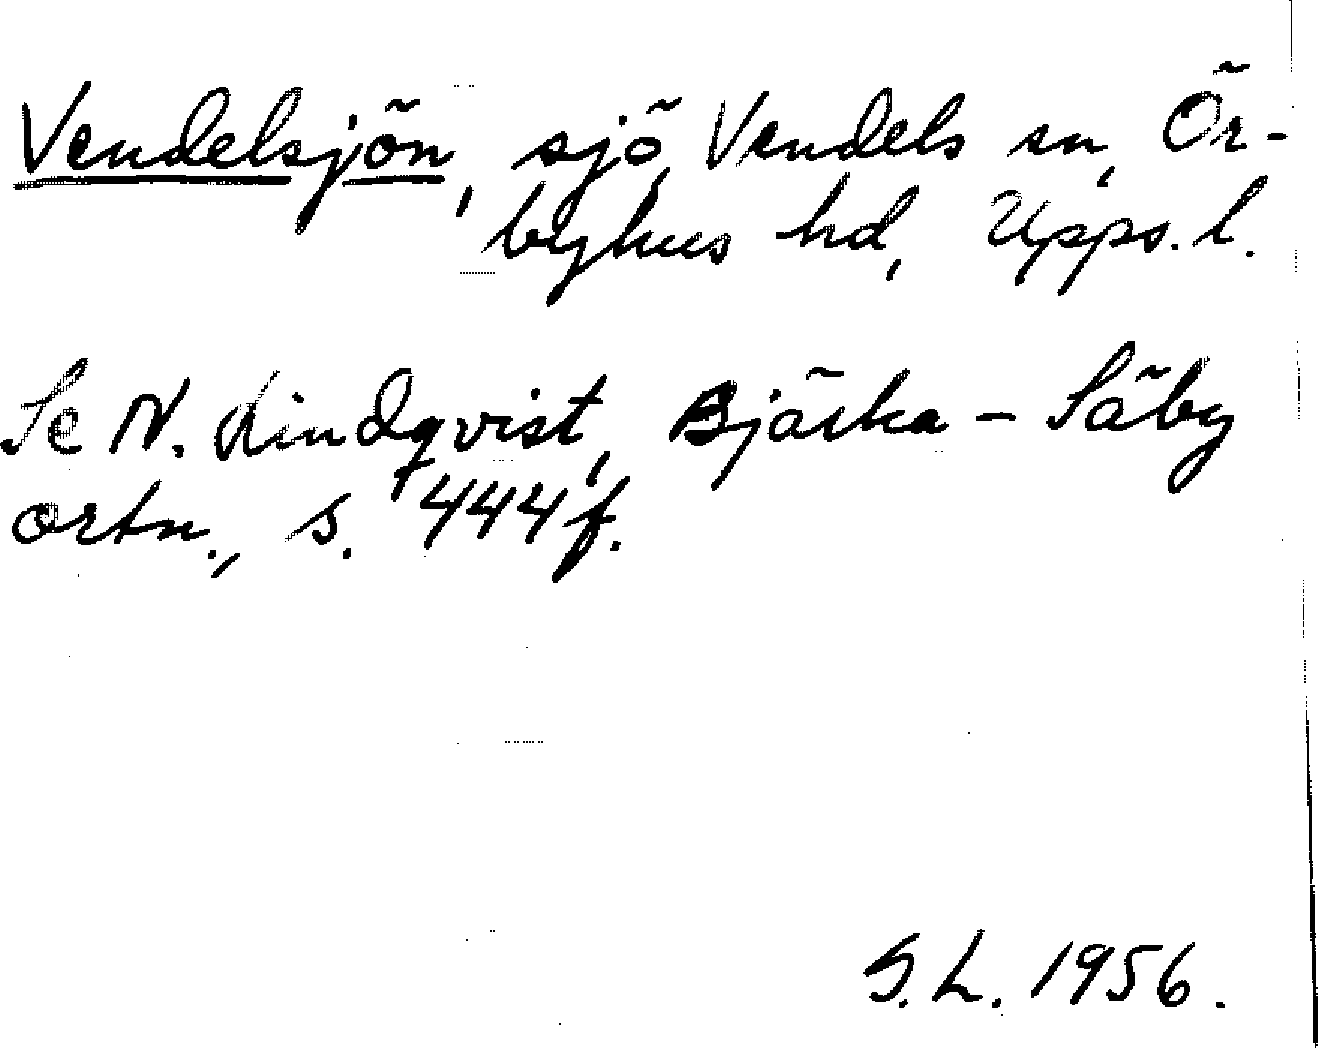 Vendelsjön, sjö, Vendels sn, Ör-
byhus hd, Upps. l.
Se N. Lindqvist, Bjärka-Säby
ortn., s. 444 f.
S.L. 1956.